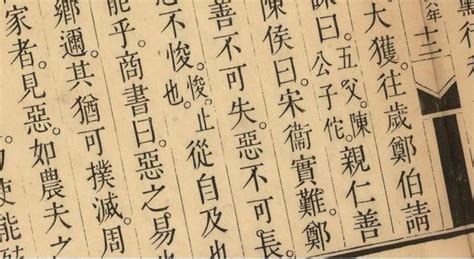 年 十三
大獲。往歲鄭伯請
曰。五父。陳公子佗。親仁善
陳侯曰。宋衞實難。鄭
善不可失。惡不可長。
不悛。悛。止也。從自及也
能乎。商書曰。惡之易
鄉邇。其猶可撲滅。周
家者。見惡。如農夫之
使能